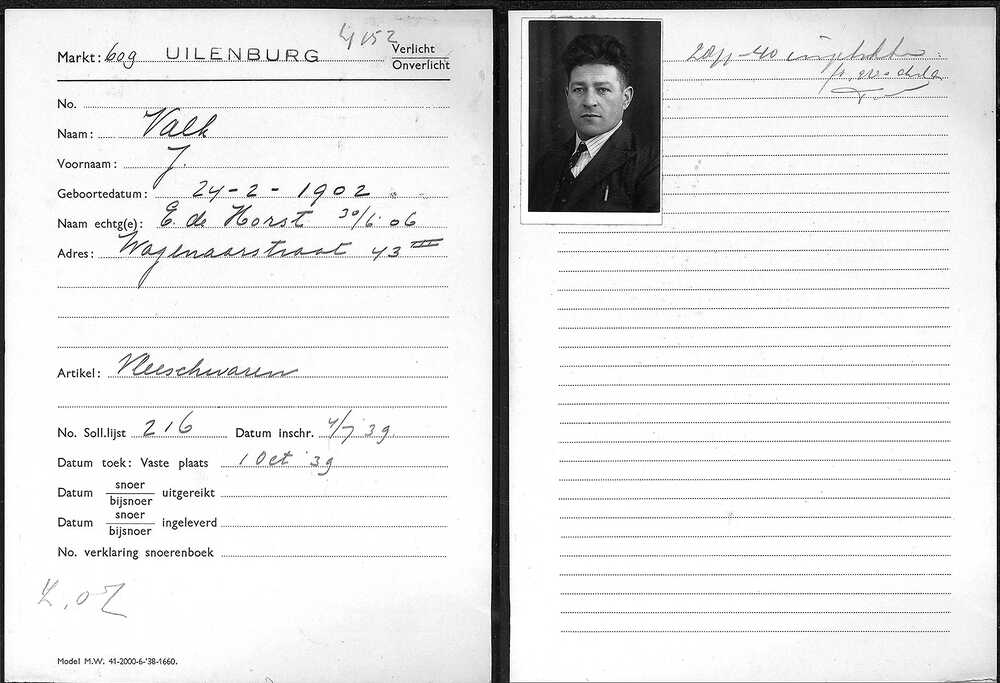 Markt: 60g UILENBURG Verlicht
Onverlicht
No.
Naam: Valk
Voornaam: J.
Geboortedatum: 24-2-1902
Naam echtg(e): E. de Horst 30/6 06
Adres: Wagenaarstraat 43 III
Artikel: Vleeschwaren
No. Soll.lijst 216 Datum inschr. 4/7 39
Datum toek: Vaste plaats 1 Oct '39
Datum snoer/bijsnoer uitgereikt
Datum snoer/bijsnoer ingeleverd
No. verklaring snoerenboek
Model M.W. 41-2000-6-'38-1660.
20/11-40 ingetrokken